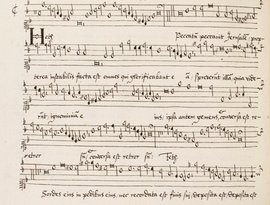 Heth Peccatum peccavit Jerusalem prop
terea instabilis facta est omnes qui glorificabant e a spreverunt illa quia vide
runt ignominia e ipsa autem gemens conversa est re
retror conversa est retror Teth
Sordes eius in pedibus eius nec recordata est finis sui deposita est deposita est